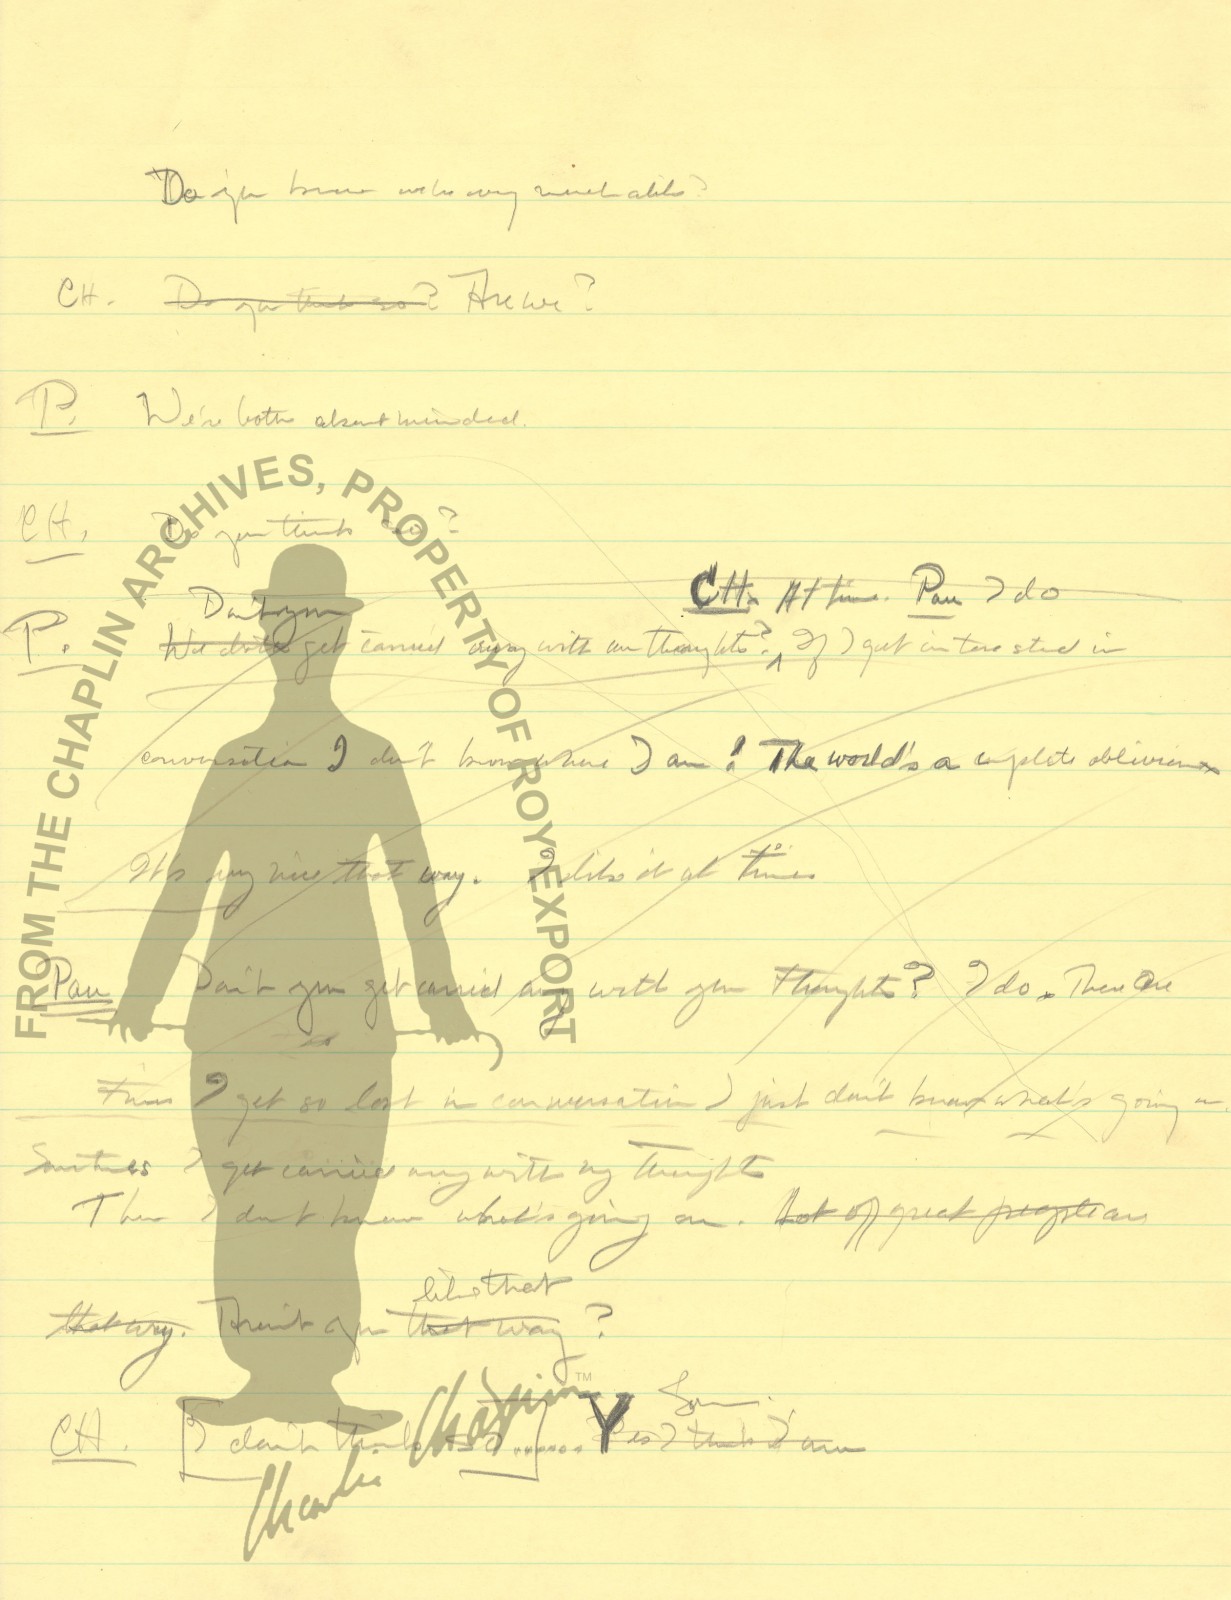 Do you know we're very much alike?
CH. Do you think so? Are we?
P. We're both absent minded.
CH. Do you think so?
Don't you CH. At times. Pau I do
P. We do get carried away with our thoughts? If I get interested in
conversation I don't know where I am! The world's a complete oblivion
It's very nice that way. I like it at times
Pau Don't you get carried away with your thoughts? I do. There are
times I get so lost in conversation I just don't know what's going on.
Sometimes I get carried away with my thoughts
Then I don't know what's going on. Lot of great people are
like that
that way. Aren't you that way?
CH. [I don't think so]...... Yes I think I am
FROM THE CHAPLIN ARCHIVES, PROPERTY OF ROY EXPORT
Charlie Chaplin™